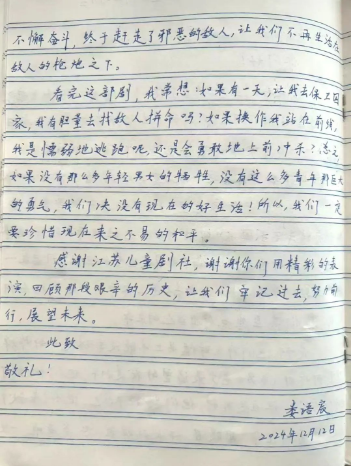 不懈奋斗，终于赶走了邪恶的敌人，让我们不再生活在
敌人的枪炮之下。
看完这部剧，我常想：如果有一天，让我去保卫国
家，我有胆量去找敌人拼命吗？如果换作我站在前线，
我是懦弱地逃跑呢，还是会勇敢地上前冲杀？总之，
如果没有那么多年轻男女的牺牲，没有这么多青年那巨大
的勇气，我们决没有现在的好生活！所以，我们一定
要珍惜现在来之不易的和平。
感谢江苏儿童剧社，谢谢你们用精彩的表
演，回顾那段艰辛的历史，让我们牢记过去，努力前
行，展望未来。
此致
敬礼！
娄语宸
2024年12月12日